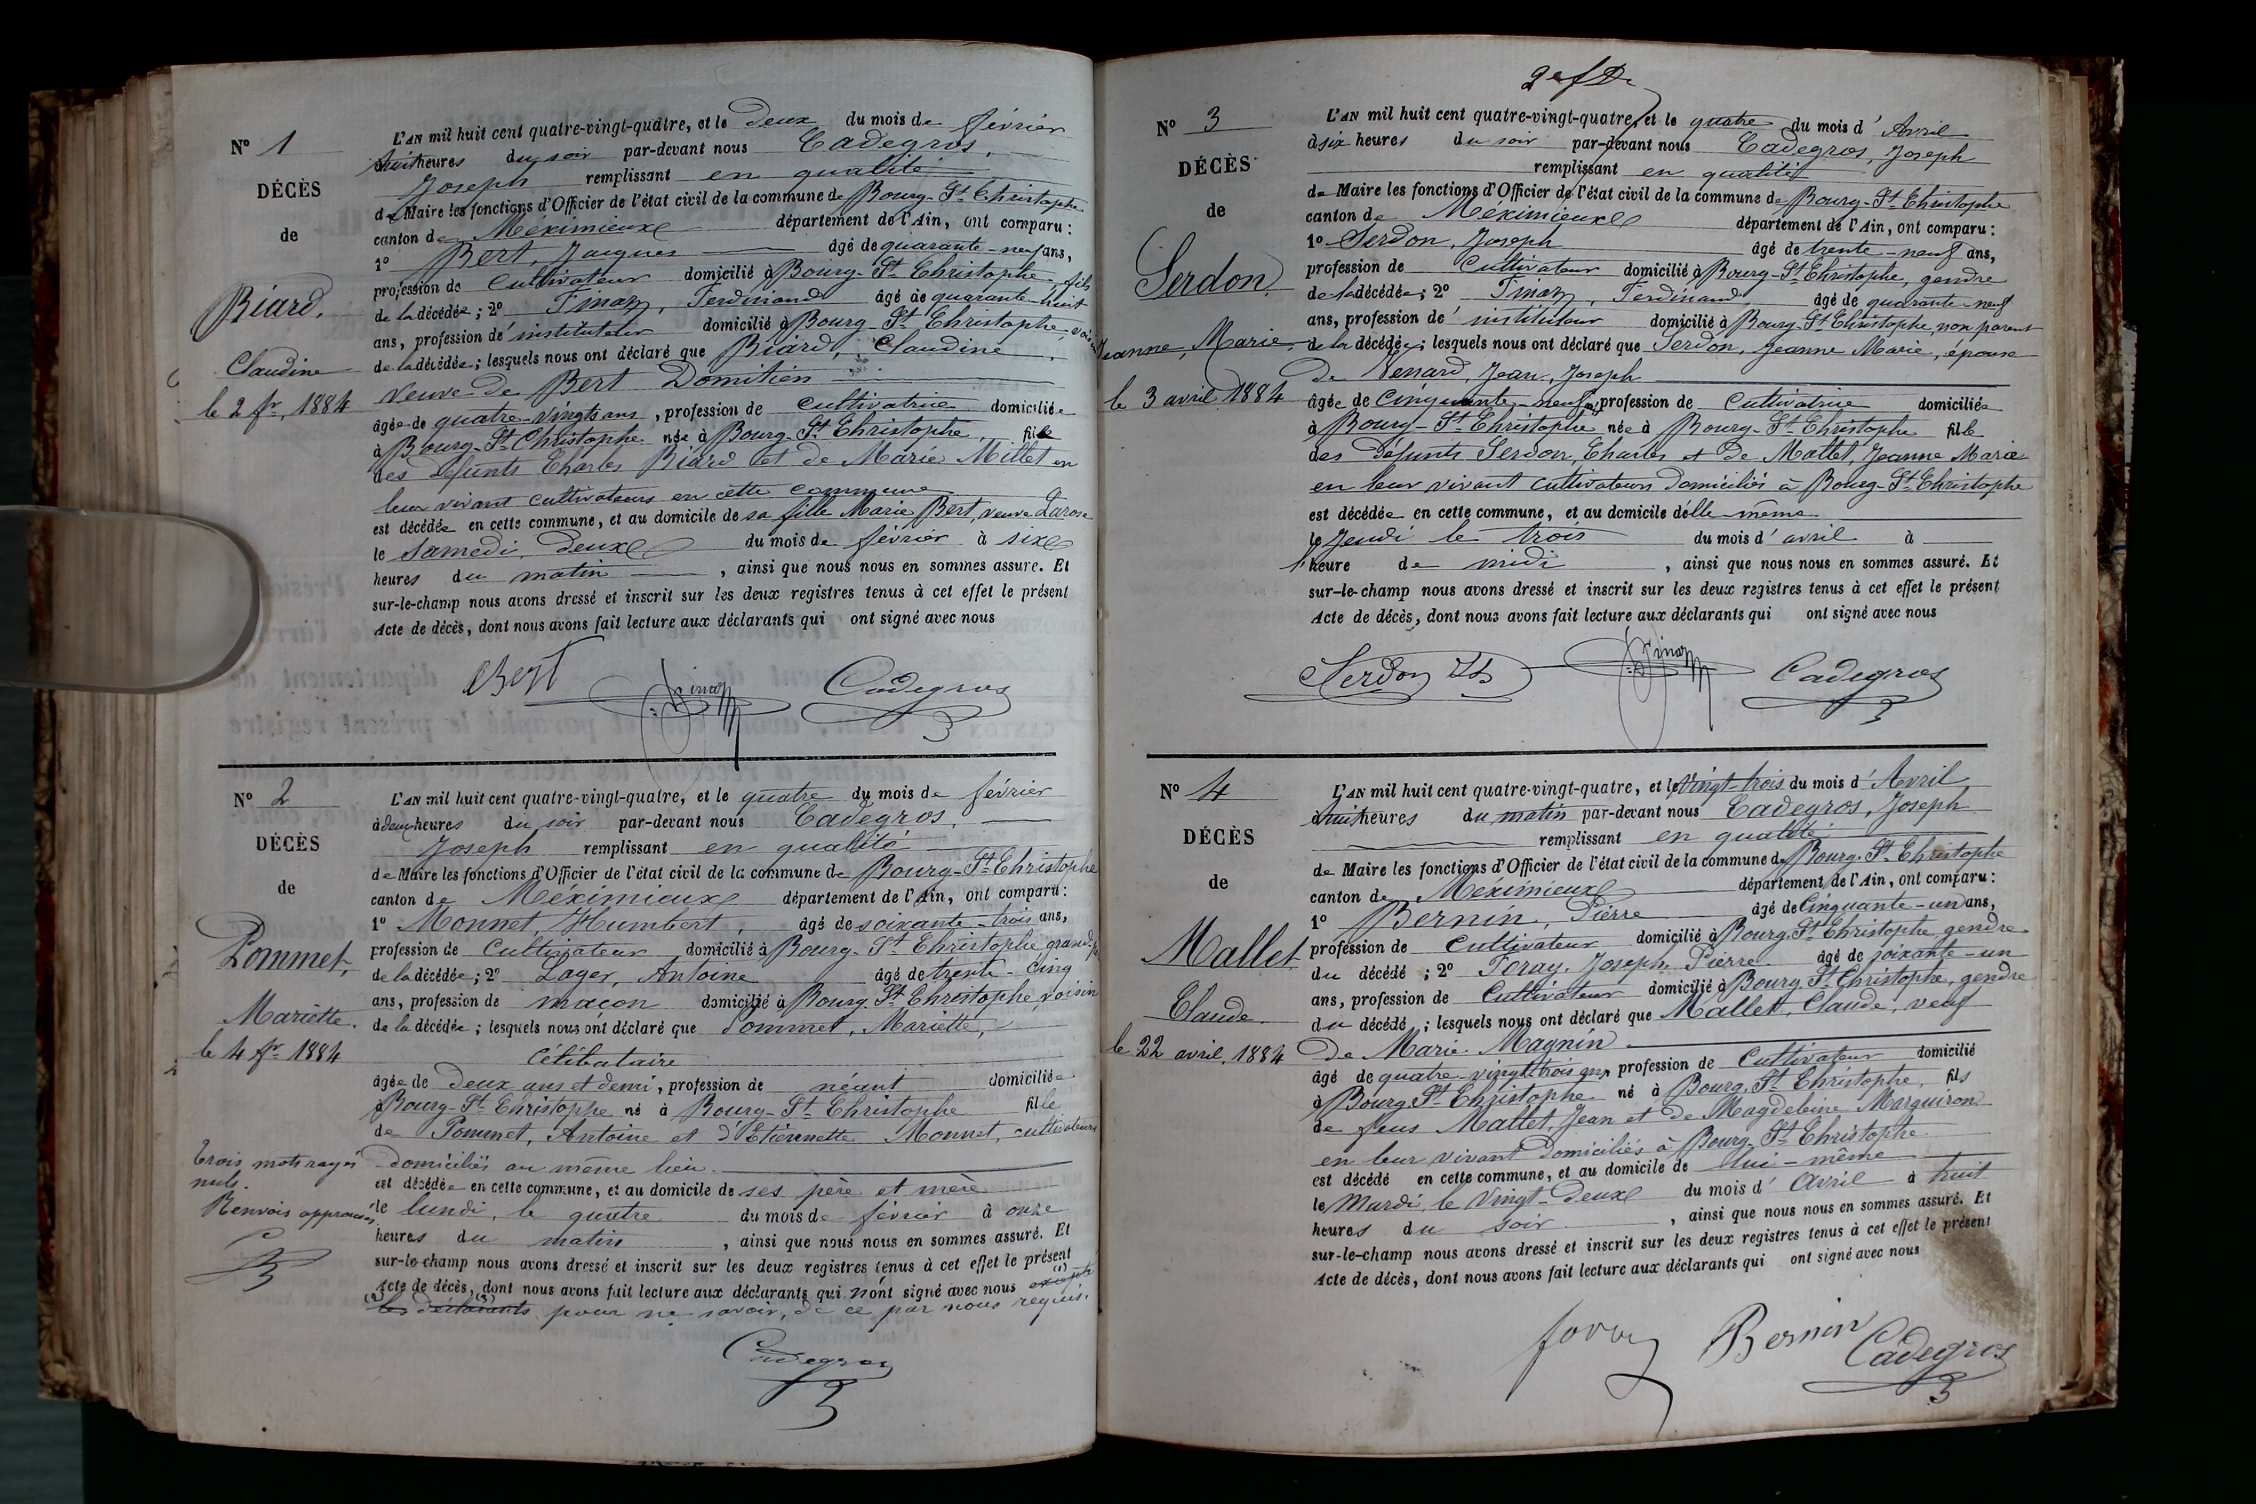 N° 1
DÉCÈS
de
Riard,
Claudine
le 2 fr. 1884
L'AN mil huit cent quatre-vingt-quatre, et le deux du mois de février
à huit heures du soir par-devant nous Cadegros,
Joseph remplissant en qualité
de Maire les fonctions d'Officier de l'état civil de la commune de Bourg-St-Christophe
canton de Méximieux département de l'Ain, ont comparu :
1° Bert, Jacques âgé de quarante-neuf ans,
profession de cultivateur domicilié à Bourg-St-Christophe, fils
de la décédée ; 2° Finaz, Ferdinand âgé de quarante-huit
ans, profession d'instituteur domicilié à Bourg-St-Christophe, voisin
de la décédée ; lesquels nous ont déclaré que Riard, Claudine,
veuve de Bert Domitien
âgée de quatre-vingts ans, profession de cultivatrice domiciliée
à Bourg-St-Christophe née à Bourg-St-Christophe, fille
des défunts Charles Riard et de Marie Millet en
leur vivant cultivateurs en cette commune
est décédée en cette commune, et au domicile de sa fille Marie Bert, veuve Larose
le samedi, deux du mois de février à six
heures du matin, ainsi que nous nous en sommes assuré. Et
sur-le-champ nous avons dressé et inscrit sur les deux registres tenus à cet effet le présent
Acte de décès, dont nous avons fait lecture aux déclarants qui ont signé avec nous
Bert Finaz Cadegros
N° 2
DÉCÈS
de
Pommet,
Mariette.
le 4 fr. 1884
Trois mots rayés
nuls.
Renvois approuvés
L'AN mil huit cent quatre-vingt-quatre, et le quatre du mois de février
à deux heures du soir par-devant nous Cadegros,
Joseph remplissant en qualité
de Maire les fonctions d'Officier de l'état civil de la commune de Bourg-St-Christophe
canton de Méximieux département de l'Ain, ont comparu :
1° Monnet, Humbert, âgé de soixante-trois ans,
profession de cultivateur domicilié à Bourg-St-Christophe, grand-p
de la décédée ; 2° Lager, Antoine âgé de trente-cinq
ans, profession de maçon domicilié à Bourg-St-Christophe, voisin
de la décédée ; lesquels nous ont déclaré que Pommet, Mariette,
célibataire
âgée de deux ans et demi, profession de néant domiciliée
à Bourg-St-Christophe né à Bourg-St-Christophe fille
de Pommet, Antoine et d'Etiennette Monnet, cultivateurs
domiciliés au même lieu.
est décédée en cette commune, et au domicile de ses père et mère
le lundi, le quatre du mois de février à onze
heures du matin, ainsi que nous nous en sommes assuré. Et
sur-le-champ nous avons dressé et inscrit sur les deux registres tenus à cet effet le présent
Acte de décès, dont nous avons fait lecture aux déclarants qui n'ont signé avec nous excepté
les déclarants pour ne savoir, de ce par nous requis.
Cadegros
N° 3
DÉCÈS
de
Serdon,
Jeanne, Marie,
le 3 avril 1884
L'AN mil huit cent quatre-vingt-quatre, et le quatre du mois d'Avril
à six heures du soir par-devant nous Cadegros, Joseph
remplissant en qualité
de Maire les fonctions d'Officier de l'état civil de la commune de Bourg-St-Christophe
canton de Méximieux département de l'Ain, ont comparu :
1° Serdon, Joseph âgé de trente-neuf ans,
profession de cultivateur domicilié à Bourg-St-Christophe, gendre
de la décédée ; 2° Finaz, Ferdinand, âgé de quarante-neuf
ans, profession d'instituteur domicilié à Bourg-St-Christophe, non parent
de la décédée ; lesquels nous ont déclaré que Serdon, Jeanne Marie, épouse
de Venard, Jean, Joseph
âgée de Cinquante-neuf ans profession de Cultivatrice domiciliée
à Bourg-St-Christophe née à Bourg-St-Christophe fille
des défunts Serdon, Charles et de Mallet, Jeanne Marie
en leur vivant cultivateurs domiciliés à Bourg-St-Christophe
est décédée en cette commune, et au domicile d'elle-même
le Jeudi le trois du mois d'avril à
l'heure de midi, ainsi que nous nous en sommes assuré. Et
sur-le-champ nous avons dressé et inscrit sur les deux registres tenus à cet effet le présent
Acte de décès, dont nous avons fait lecture aux déclarants qui ont signé avec nous
Serdon Finaz Cadegros
N° 4
DÉCÈS
de
Mallet
Claude.
le 22 avril. 1884
L'AN mil huit cent quatre-vingt-quatre, et le vingt-trois du mois d'Avril
à huit heures du matin par-devant nous Cadegros, Joseph
remplissant en qualité
de Maire les fonctions d'Officier de l'état civil de la commune de Bourg-St-Christophe
canton de Méximieux département de l'Ain, ont comparu :
1° Bernin, Pierre âgé de Cinquante-un ans,
profession de cultivateur domicilié à Bourg-St-Christophe, gendre
du décédé ; 2° Foray, Joseph, Pierre âgé de soixante-un
ans, profession de Cultivateur domicilié à Bourg-St-Christophe, gendre
du décédé ; lesquels nous ont déclaré que Mallet, Claude, veuf
de Marie Magnin
âgé de quatre-vingt-trois ans, profession de Cultivateur domicilié
à Bourg-St-Christophe né à Bourg-St-Christophe, fils
de feus Mallet, Jean et de Magdeleine Marguiron
en leur vivant domiciliés à Bourg-St-Christophe
est décédé en cette commune, et au domicile de lui-même
le Mardi, le vingt-deux du mois d'Avril à huit
heures du soir, ainsi que nous nous en sommes assuré. Et
sur-le-champ nous avons dressé et inscrit sur les deux registres tenus à cet effet le présent
Acte de décès, dont nous avons fait lecture aux déclarants qui ont signé avec nous
foray Bernin Cadegros